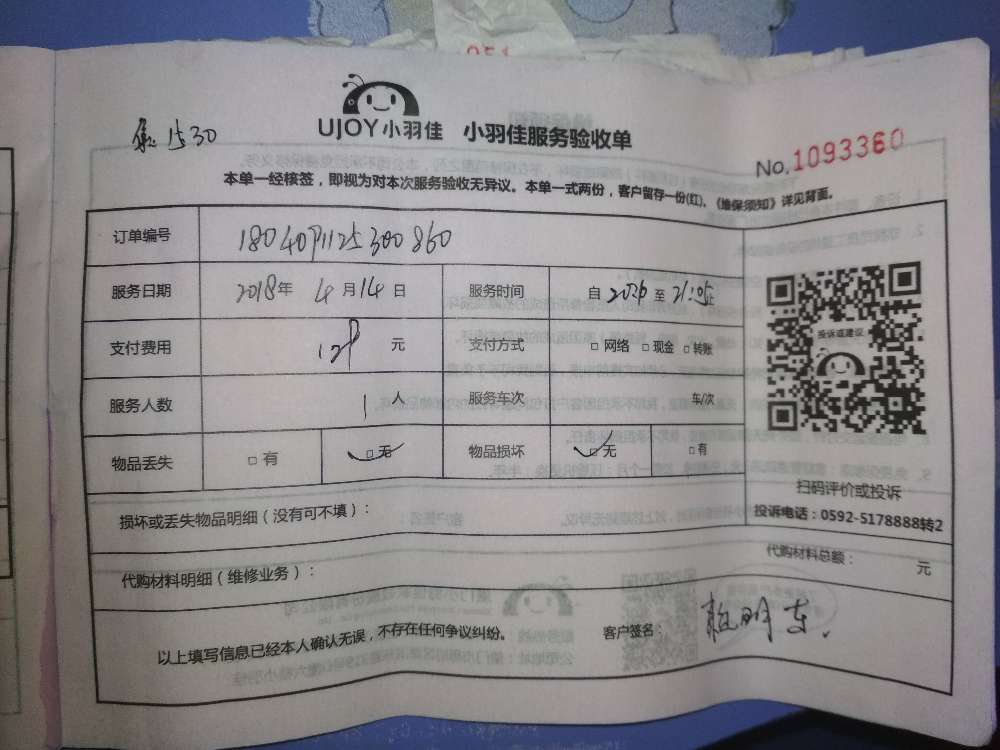 1530
UJOY小羽佳 小羽佳服务验收单
No.1093360
本单一经核签，即视为对本次服务验收无异议。本单一式两份，客户留存一份(红)、《维保须知》详见背面。
订单编号
服务日期 2018年 4月14日 服务时间 自 至 21:05止
支付费用 元 支付方式 □ 网络 □ 现金 □ 转账
服务人数 1 人 服务车次 车/次
物品丢失 □ 有 □ 无 物品损坏 □ 无 □ 有
投诉或建议
扫码评价或投诉
投诉电话：0592-5178888转2
损坏或丢失物品明细（没有可不填）：
代购材料明细（维修业务）： 代购材料总额： 元
以上填写信息已经本人确认无误，不存在任何争议纠纷。 客户签名：